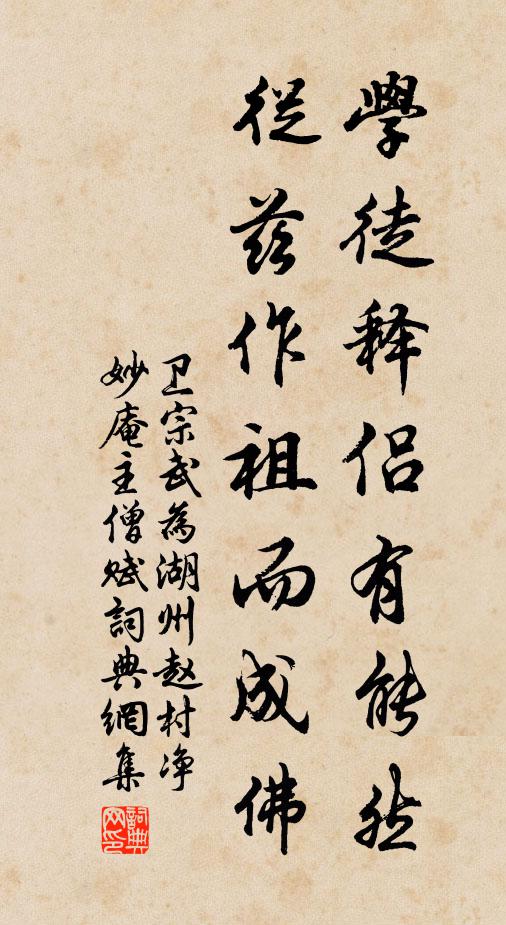 學徒释侣有能然
從兹作祖而成佛
卫宗武為湖州赵村净
妙庵主僧赋詞典網集
詞典网印